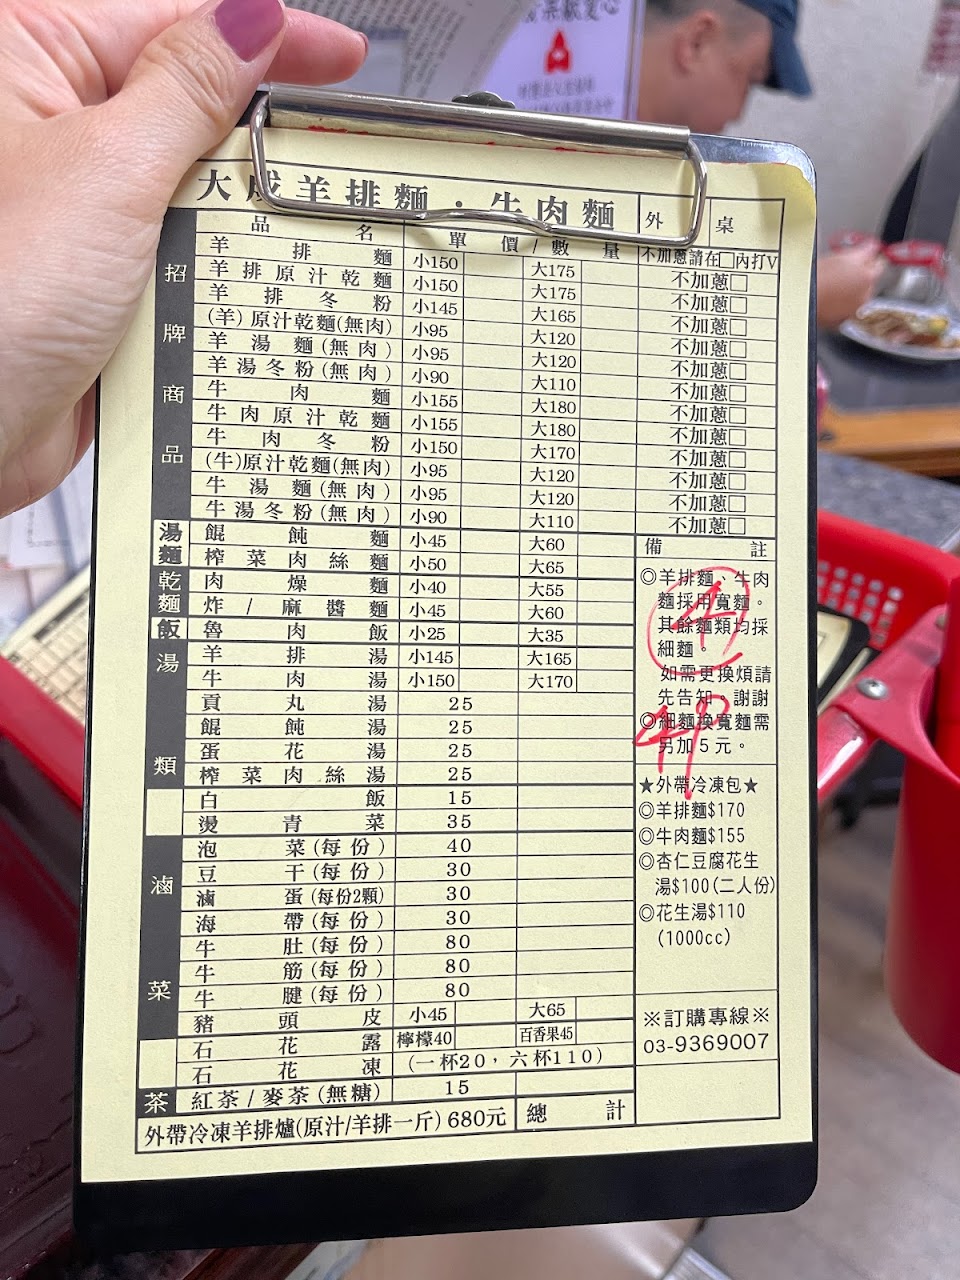 大成羊排麵・牛肉麵 外 桌
品名 單價/數量 不加蔥請在□內打V
招牌商品
羊排麵 小150 大175 不加蔥□
羊排原汁乾麵 小150 大175 不加蔥□
羊排冬粉 小145 大165 不加蔥□
(羊)原汁乾麵(無肉) 小95 大120 不加蔥□
羊湯麵(無肉) 小95 大120 不加蔥□
羊湯冬粉(無肉) 小90 大110 不加蔥□
牛肉麵 小155 大180 不加蔥□
牛肉原汁乾麵 小155 大180 不加蔥□
牛肉冬粉 小150 大170 不加蔥□
(牛)原汁乾麵(無肉) 小95 大120 不加蔥□
牛湯麵(無肉) 小95 大120 不加蔥□
牛湯冬粉(無肉) 小90 大110 不加蔥□
湯麵
餛飩麵 小45 大60
榨菜肉絲麵 小50 大65
乾麵
肉燥麵 小40 大55
炸/麻醬麵 小45 大60
飯
魯肉飯 小25 大35
湯類
羊排湯 小145 大165
牛肉湯 小150 大170
貢丸湯 25
餛飩湯 25
蛋花湯 25
榨菜肉絲湯 25
白飯 15
燙青菜 35
滷菜
泡菜(每份) 40
豆干(每份) 30
滷蛋(每份2顆) 30
海帶(每份) 30
牛肚(每份) 80
牛筋(每份) 80
牛腱(每份) 80
豬頭皮 小45 大65
石花露 檸檬40 百香果45
石花凍 (一杯20，六杯110)
茶
紅茶/麥茶(無糖) 15
外帶冷凍羊排爐(原汁/羊排一斤)680元 總計
備註
◎羊排麵、牛肉
麵採用寬麵。
其餘麵類均採
細麵。
如需更換煩請
先告知。謝謝
◎細麵換寬麵需
另加５元。
★外帶冷凍包★
◎羊排麵$170
◎牛肉麵$155
◎杏仁豆腐花生
湯$100(二人份)
◎花生湯$110
(1000cc)
※訂購專線※
03-9369007